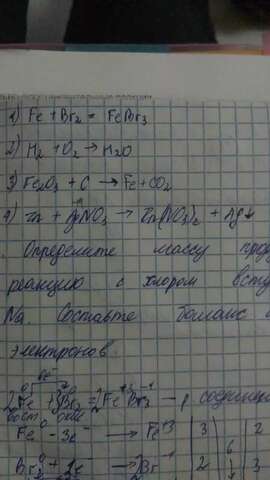 1) Fe + Br₂ = FeBr₃
2) H₂ + O₂ → H₂O
3) Fe₂O₃ + C → Fe + CO₂
4) Zn + AgNO₃ → Zn(NO₃)₂ + Ag↓
. Определите массу прод
реакцию с хлором всту
Na. Составьте баланс
электронов
2Fe + 3Br₂ = 2Fe⁺³Br₃⁻¹ - р. соедине
вост. окис
Fe⁰ - 3e⁻ → Fe⁺³ | 3 | | 2
Br₂⁰ + 2e → 2Br⁻ | 2 | 6 | 3